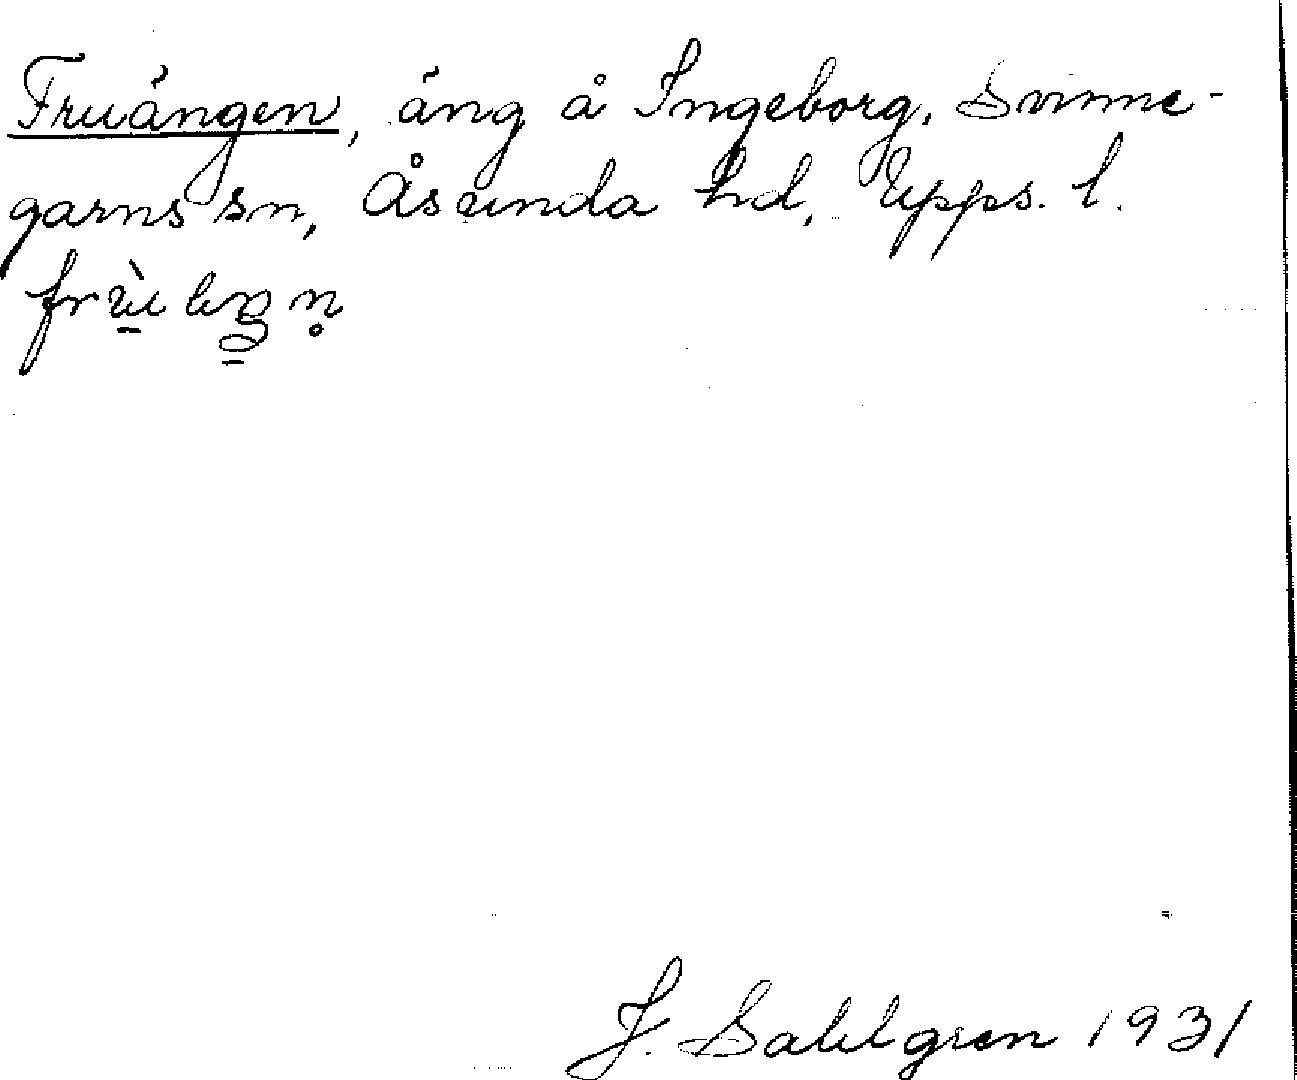 Fruängen, äng å Ingeborg, Svinne-
garns sn, Åsunda hd, Upps. l.
J. Sahlgren 1931